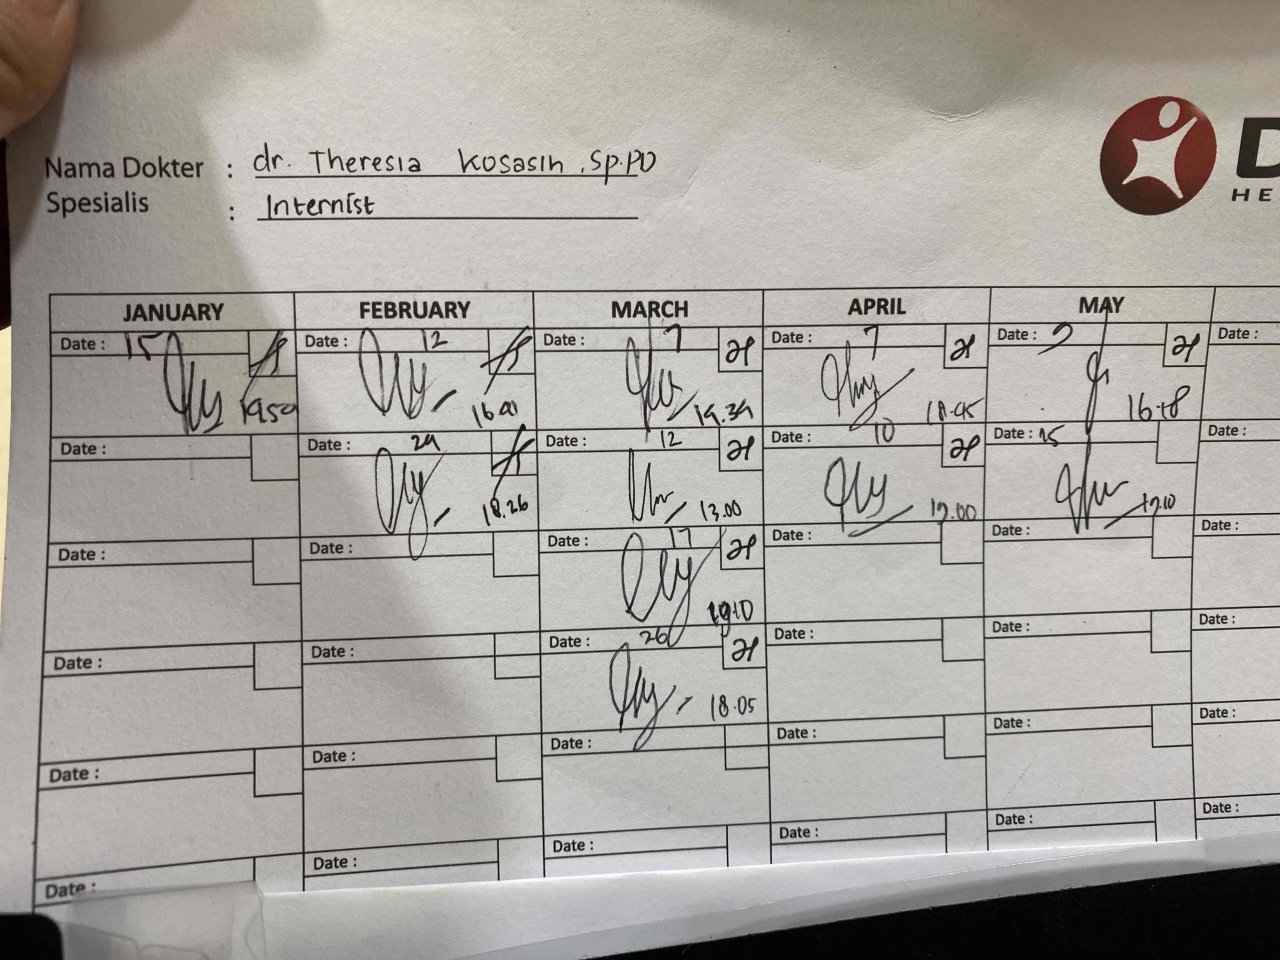 Nama Dokter : dr. Theresia Kosasih, Sp.PD
Spesialis : Internist
D
HE
JANUARY FEBRUARY MARCH APRIL MAY
Date : 15 Date : 12 Date : 7 Date : 7 Date : Date :
19.50 19.39 18.45 16.18
Date : Date : 29 Date : 12 Date : 10 Date : 15 Date :
18.26 13.00 17.10
Date : Date : Date : 17 Date : Date : Date :
Date : Date : Date : 26 Date : Date : Date :
18.05
Date : Date : Date : Date : Date : Date :
Date : Date : Date : Date : Date : Date :